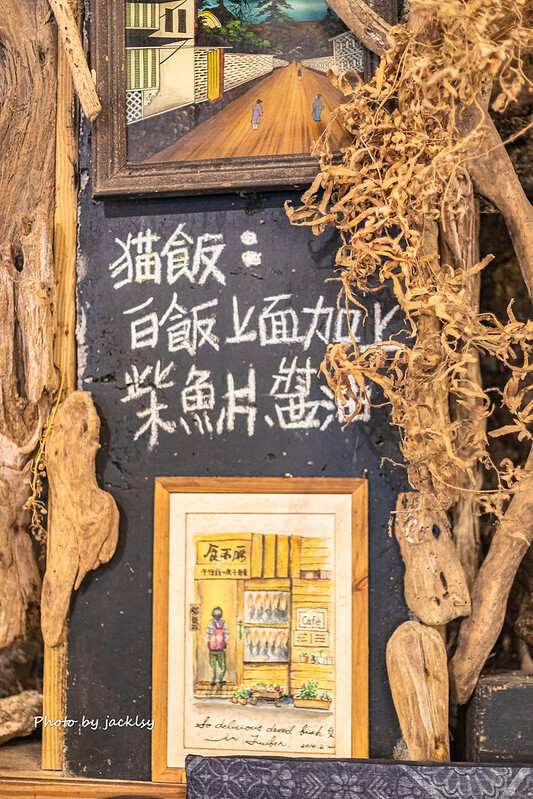 猫飯：
白飯上面加上
柴魚片.醬油
食不厭
Café
So delicious dried fish
in Tuifen
Photo by jacklsy